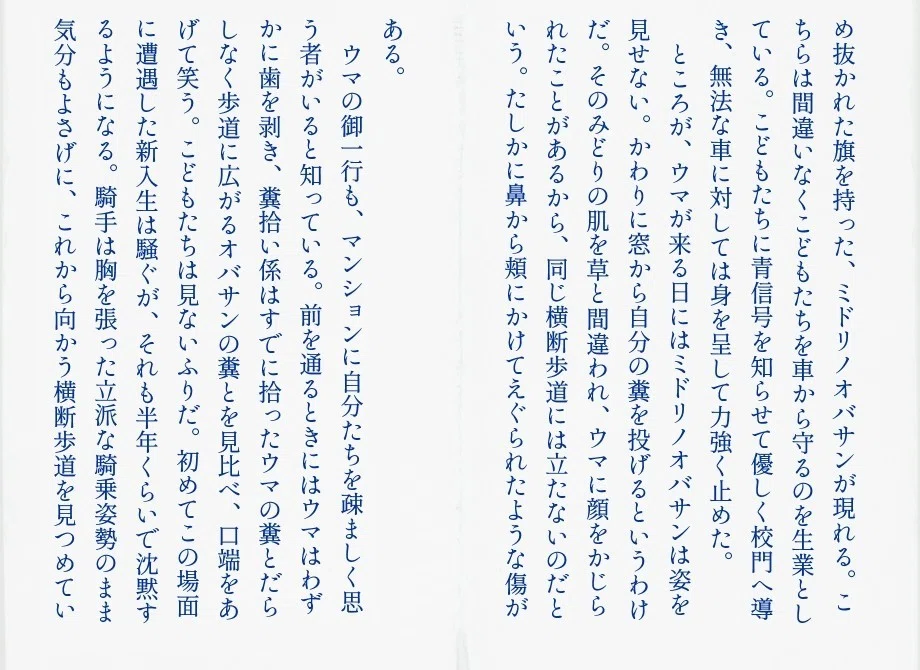 め抜かれた旗を持った、ミドリノオバサンが現れる。こ
ちらは間違いなくこどもたちを車から守るのを生業とし
ている。こどもたちに青信号を知らせて優しく校門へ導
き、無法な車に対しては身を呈して力強く止めた。
ところが、ウマが来る日にはミドリノオバサンは姿を
見せない。かわりに窓から自分の糞を投げるというわけ
だ。そのみどりの肌を草と間違われ、ウマに顔をかじら
れたことがあるから、同じ横断歩道には立たないのだと
いう。たしかに鼻から頬にかけてえぐられたような傷が
ある。
ウマの御一行も、マンションに自分たちを疎ましく思
う者がいると知っている。前を通るときにはウマはわず
かに歯を剥き、糞拾い係はすでに拾ったウマの糞とだら
しなく歩道に広がるオバサンの糞とを見比べ、口端をあ
げて笑う。こどもたちは見ないふりだ。初めてこの場面
に遭遇した新入生は騒ぐが、それも半年くらいで沈黙す
るようになる。騎手は胸を張った立派な騎乗姿勢のまま
気分もよさげに、これから向かう横断歩道を見つめてい